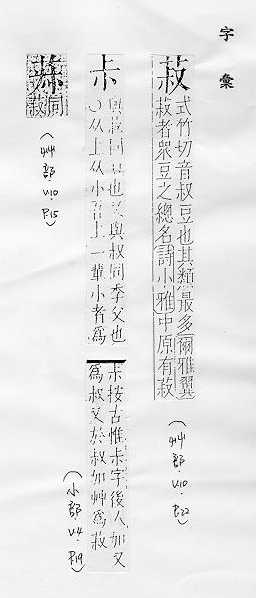 字彙
菽
式竹切音叔豆也其類最多爾雅翼
菽者眾豆之總名詩小雅中原有菽
(艸部.V10.P22)
尗
與菽同豆也 與叔同季父也
从上从小 上一輩小者為
尗按古惟尗字後人加又
為叔父於叔加艸為菽
(小部.V4.P19)
同
菽
(艸部.V10.P15)